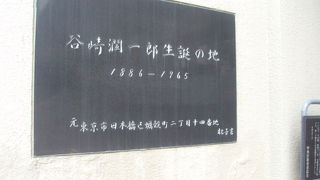 谷崎潤一郎生誕の地
1886-1965
元東京市日本橋区蛎殻町二丁目十四番地
松子書